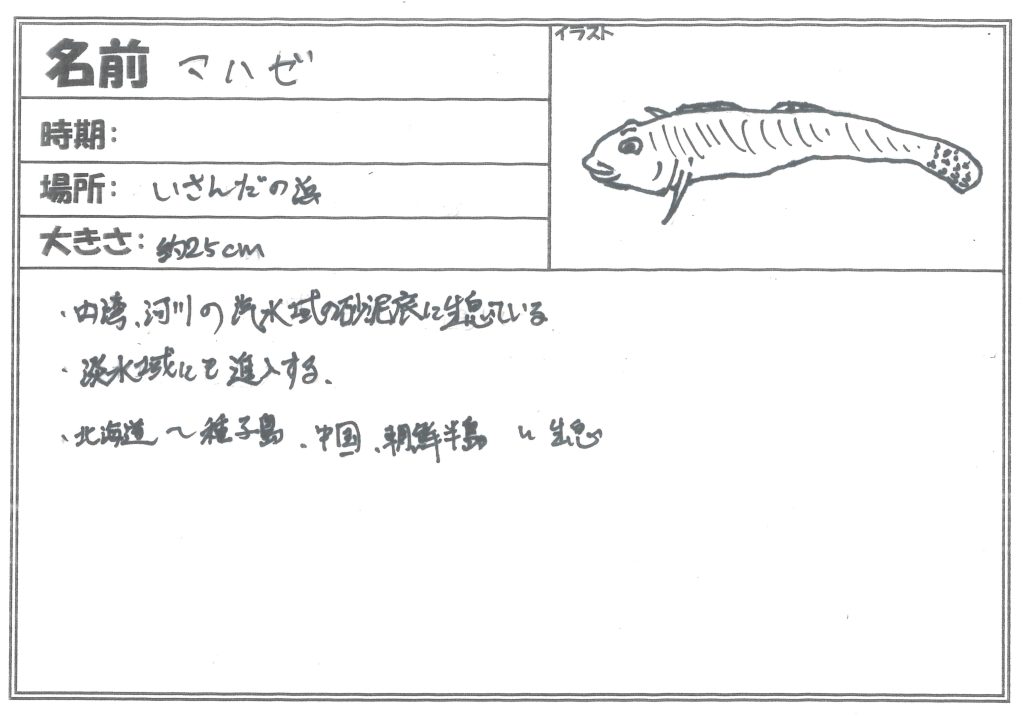 名前 マハゼ
イラスト
時期:
場所: いさんだの浜
大きさ: 約25cm
・内湾、河川の汽水域の砂泥底に生息している
・淡水域にも進入する.
・北海道〜種子島、中国、朝鮮半島に生息